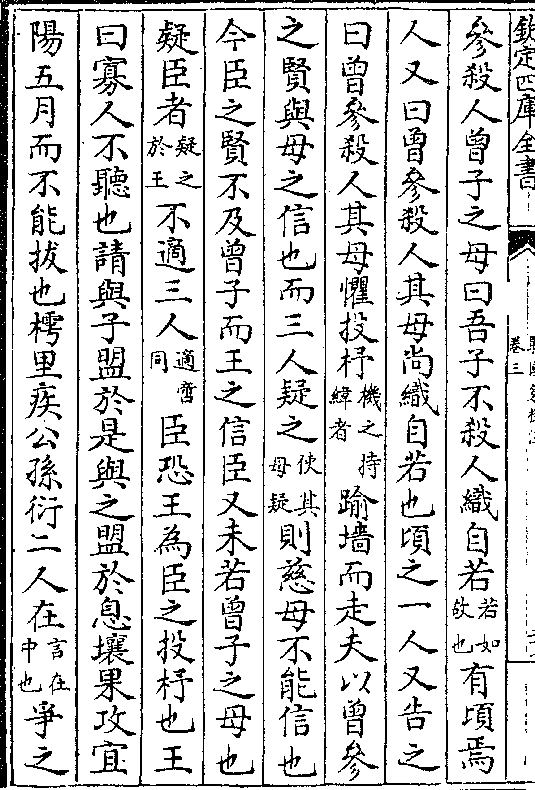 欽定四庫全書
卷三
參殺人曾子之母曰吾子不殺人織自若若如故也有頃焉
人又曰曾參殺人其母尚織自若也頃之一人又告之
曰曾參殺人其母懼投杼機之持緯者踰墻而走夫以曾參
之賢與母之信也而三人疑之使其母疑則慈母不能信也
今臣之賢不及曾子而王之信臣又未若曾子之母也
疑臣者疑之於王不適三人適啻同臣恐王為臣之投杼也王
曰寡人不聽也請與子盟於是與之盟於息壤果攻宜
陽五月而不能拔也樗里疾公孫衍二人在言在中也爭之